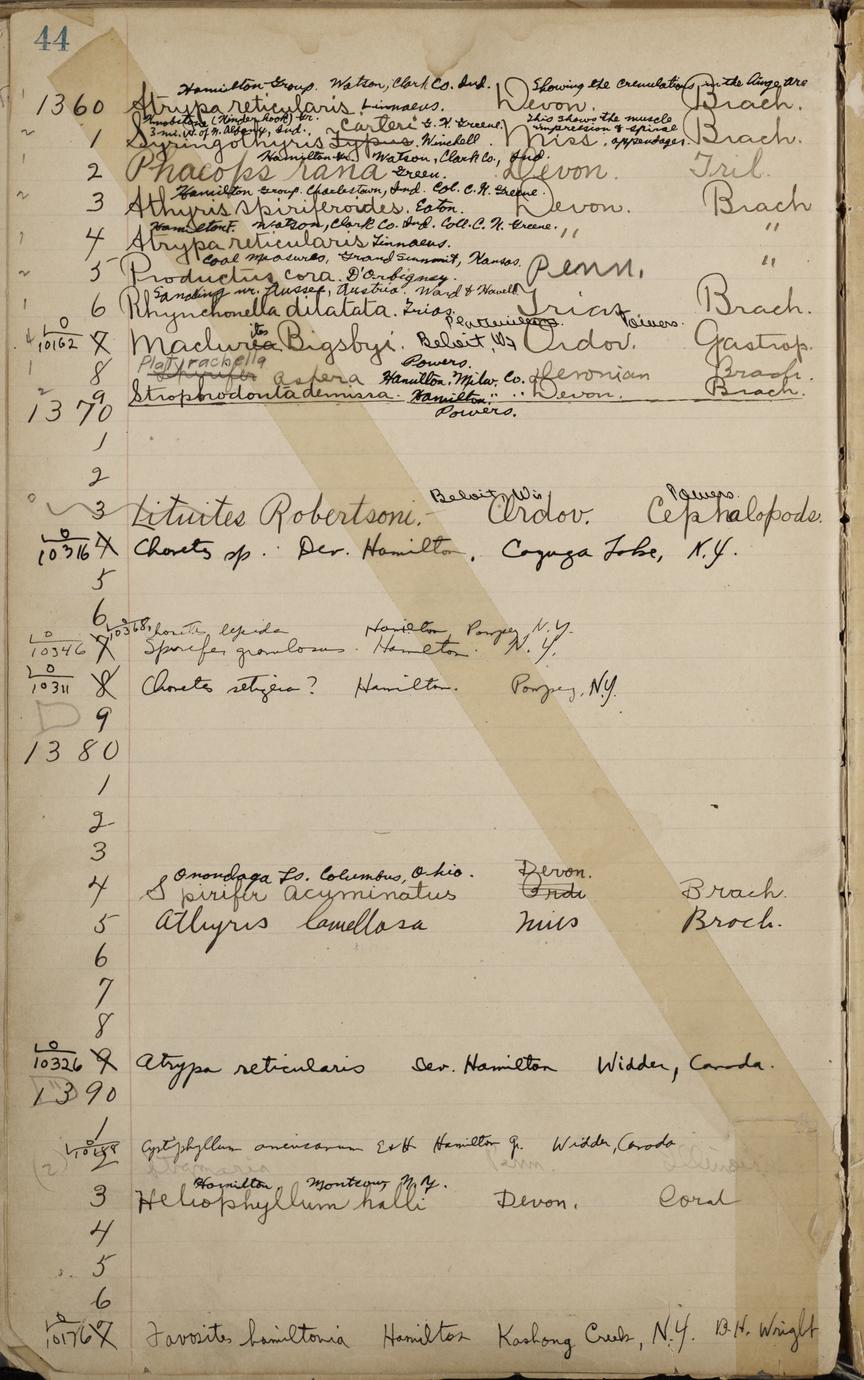 44
Hamilton Group. Watson, Clark Co. Ind. Showing the crenulations in the hinge are
1360 Atrypa reticularis Linnaeus. Devon. Brach.
Knobstone (Kinderhook) Gr. Carteri G. K. Greene. This shows the muscle
3 mi. N. of N. Albany, Ind. impression & spiral
1 Syringothyris Typus. Winchell Miss. appendages. Brach.
Hamilton Gr. Watson, Clark Co., Ind.
2 Phacops rana Green. Devon. Tril.
Hamilton Group. Charlestown, Ind. Col. G. K. Greene.
3 Athyris spiriferoides. Eaton. Devon. Brach
Hamilton Watson, Clark Co. Ind. Coll. G. K. Greene.
4 Atrypa reticularis Linnaeus. " "
Coal measures, Grand Summit, Kansas.
5 Productus cora. D'Orbigney. Penn. "
Sandling nr. Aussee, Austria. Ward & Howell
6 Rhynchonella dilatata. Trias. Trias Brach.
Platteville Powers.
10162 7 Maclurites Bigsbyi. Beloit, Wis Ordov. Gastrop.
Platyrachella Powers.
8 Spirifer aspera Hamilton, Milw. Co. Devonian Brach.
9 Strophodonta demissa. Hamilton " " Devon. Brach.
1370 Powers.
1
2
Beloit, Wis Powers.
3 Lituites Robertsoni. Ordov. Cephalopods.
10316 4 Chonetes sp. Dev. Hamilton, Cayuga Lake, N.Y.
5
6
10368 Chonetes lepida Hamilton Pompey N.Y.
10346 7 Spirifer granulosus. Hamilton. N.Y.
10311 8 Chonetes setigera? Hamilton. Pompey, N.Y.
9
1380
1
2
3
Onondaga Ls. Columbus, Ohio. Devon.
4 Spirifer Acuminatus Ordi Brach.
5 Athyris lamellosa Miss Brach.
6
7
8
10326 9 Atrypa reticularis Dev. Hamilton Widder, Canada.
1390
1
2 Cystiphyllum americanum E&H Hamilton gr. Widder, Canada
Hamilton Monteour N.Y.
3 Heliophyllum halli Devon. Coral
4
5
6
10176 7 Favosites hamiltonia Hamilton Kashong Creek, N.Y. B.H. Wright